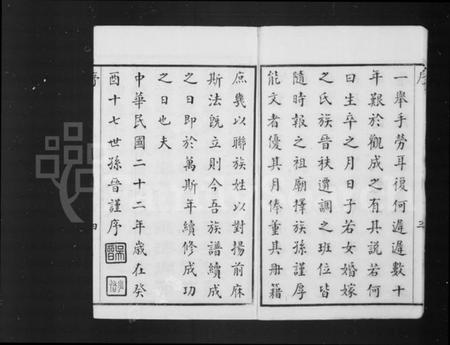 序
一舉手勞耳復何遲遲數十
年艱於觀成之有其說若何
曰生卒之月日子若女婚嫁
之氏族晉秩遷調之班位皆
隨時報之祖廟擇族孫謹厚
能文者優其月俸董其冊籍
庶幾以聯族姓以對揚前庥
斯法既立則今吾族譜續成
之日即於萬斯年續修成功
之日也夫
中華民國二十二年歲在癸
酉十七世孫晉謹序
四